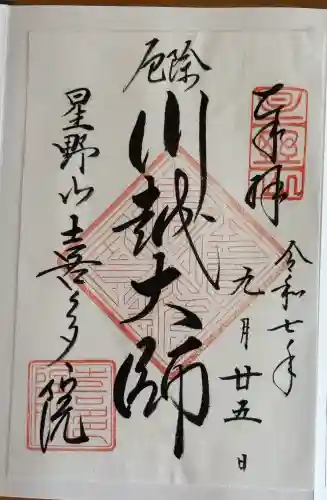 奉拝
令和七年
元月廿五日
厄除
川越大師
星野山喜多院